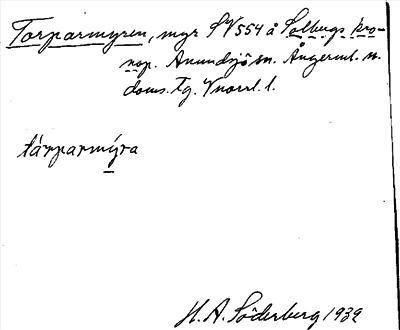 Torparmyren, mgr SV554 å Solbergs kro-
nop. Anundsjö sn. Ångerml. n.
doms. Tg. Vnorrl. l.
tárparmýra
H. A. Söderberg 1939